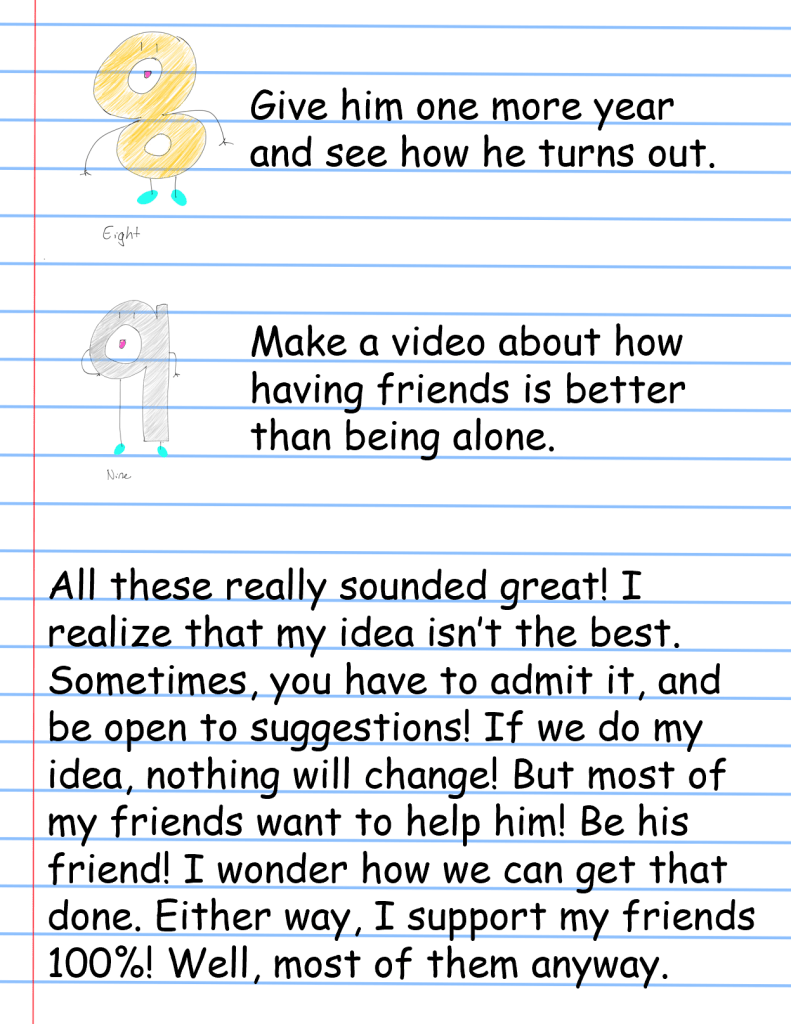 Give him one more year
and see how he turns out.
Eight
Make a video about how
having friends is better
than being alone.
Nine
All these really sounded great! I
realize that my idea isn't the best.
Sometimes, you have to admit it, and
be open to suggestions! If we do my
idea, nothing will change! But most of
my friends want to help him! Be his
friend! I wonder how we can get that
done. Either way, I support my friends
100%! Well, most of them anyway.